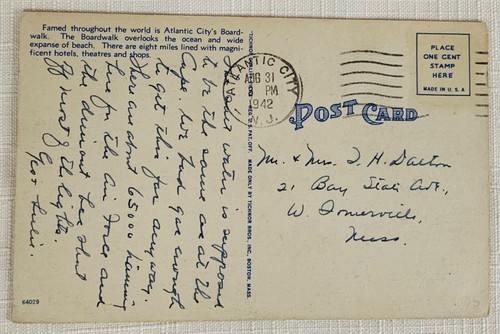 Famed throughout the world is Atlantic City's Board-
walk. The Boardwalk overlooks the ocean and wide
expanse of beach. There are eight miles lined with magnif-
icent hotels, theatres and shops.
The salt water is supposed
to be the same as at the
Cape. We had gas enough
to get this far anyway.
There are about 65000 training
here for the Air Force and
the dimout has shut
off most of the lights.
64029
"TICHNOR QUALITY VIEWS," REG. U. S. PAT. OFF. MADE ONLY BY TICHNOR BROS., INC., BOSTON, MASS.
ATLANTIC CITY
AUG 31
PM
1942
N. J.
POST CARD
PLACE
ONE CENT
STAMP
HERE
MADE IN U. S. A
Mr. & Mrs. T. H. Dalton
21 Bay State Ave.,
W. Somerville,
Mass.